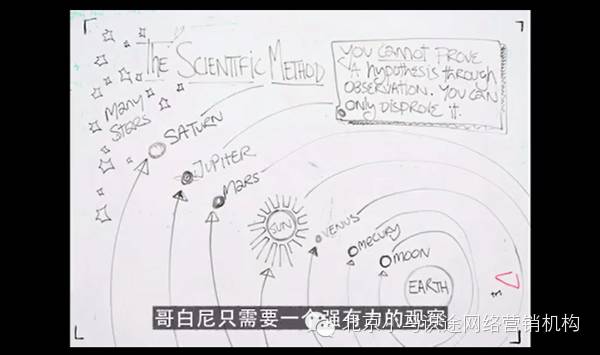 THE SCIENTIFIC METHOD
YOU CANNOT PROVE
A hypothesis through
OBSERVATION. YOU CAN
only DISPROVE it.
MANY
STARS
SATURN
JUPITER
MARS
SUN
VENUS
MECURY
MOON
EARTH
哥白尼只需要一个强有力的观察
北京小马识途网络营销机构